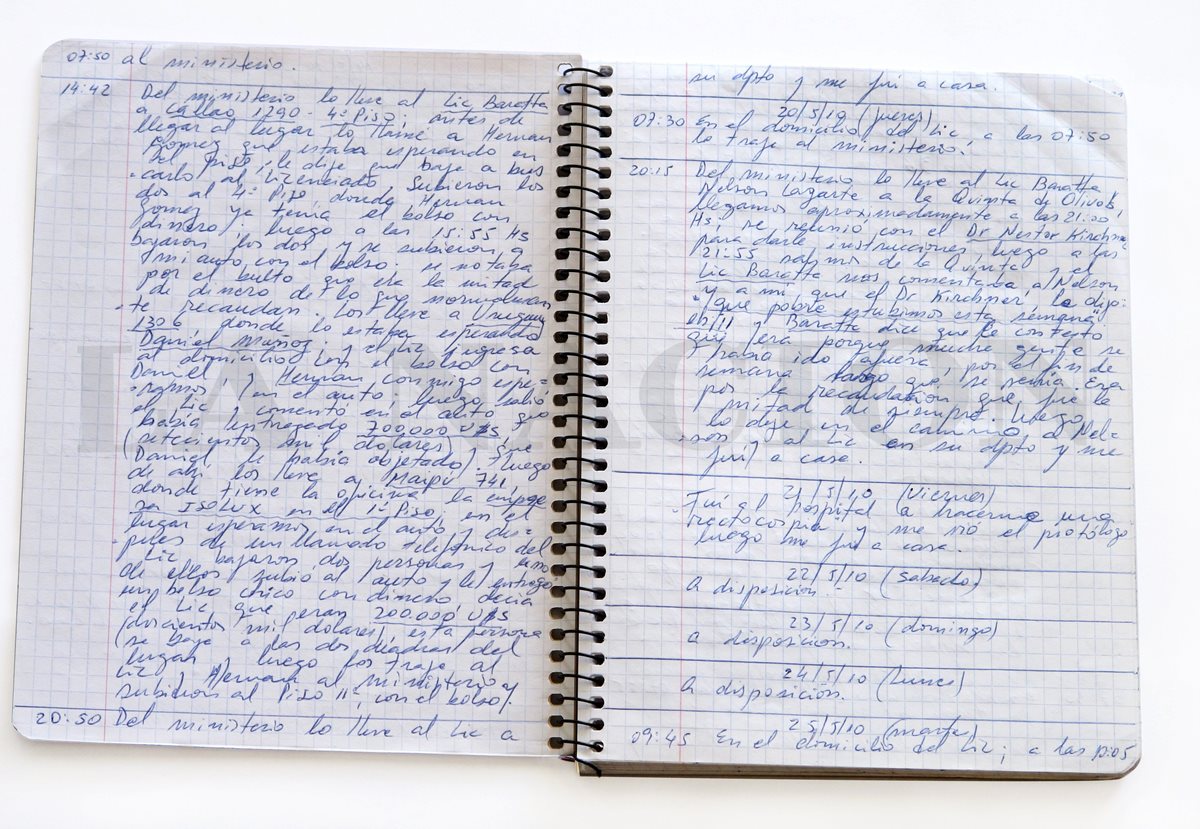 07:50 al ministerio.
14:42 Del ministerio lo lleve al Lic Baratta
a Callao 1290- 4º Piso, antes de
llegar al lugar lo llame a Hernan
Gomez que estaba esperando en
el piso, le dije que baje a bus
carlo al Licenciado. Subieron los
dos al 4º Piso, donde Hernan
Gomez ya tenia el bolso con
dinero, luego a las 15:55 Hs
bajaron los dos y se subieron a
mi auto con el bolso. se notaba
por el bulto que era la mitad
de dinero de lo que normalmen
te recaudan. Los lleve a Uruguay
1306, donde lo estaba esperando
Daniel Muñoz. y el Lic ingresa
al domicilio con el bolso con
Daniel y Hernan conmigo espe-
ramos en el auto, luego salió
el Lic y comentó en el auto que
habia entregado 700.000 U$S,
(setecientos mil dolares) y que
Daniel le habia objetado). luego
de ahi los lleve a Maipu 741,
donde tiene la oficina la empre
sa ISOLUX en el 1º Piso, en el
lugar esperamos en el auto y des-
pues de un llamado telefónico del
Lic bajaron dos personas y uno
de ellos subio al auto y le entregó
un bolso chico con dinero decia
el Lic que eran 200.000 U$S
(doscientos mil dolares), esta persona
se bajo a las dos cuadras del
lugar, luego los traje al
Lic y Hernan al ministerio y
subieron al Piso 11, con el bolso).
20:50 Del ministerio lo lleve al Lic a
su dpto y me fui a casa.
20/5/10 (jueves)
07:30 En el domicilio del Lic, a las 07:50
lo traje al ministerio.
20:15 Del ministerio lo lleve al Lic Baratta
Nelson Lazarte a la Quinta de Olivos,
llegamos aproximadamente a las 21:00
Hs, se reunió con el Dr Nestor Kirchner
para darle instrucciones, luego a las
21:55 salimos de la Quinta y el
Lic Baratta nos comentaba a Nelson
y a mi que el Dr Kirchner, le dijo:
"que pobre estubimos esta semana"
y Baratta dice que le contesto
que era porque mucha gente se
habia ido afuera, por el fin de
semana largo que se venia. Era
por la recaudacion que fue la
mitad de siempre, luego
lo deje en el camino a Nel-
son y al Lic en su dpto y me
fui a casa.
21/5/10 (Viernes)
Fui al hospital a hacerme una
rectoscopia y me vió el proctólogo
luego me fui a casa.
22/5/10 (sabado)
A disposicion.
23/5/10 (domingo)
a disposicion.
24/5/10 (Lunes)
A disposicion.
25/5/10 (martes)
09:45 En el domicilio del Lic; a las 10:05
LA NACION